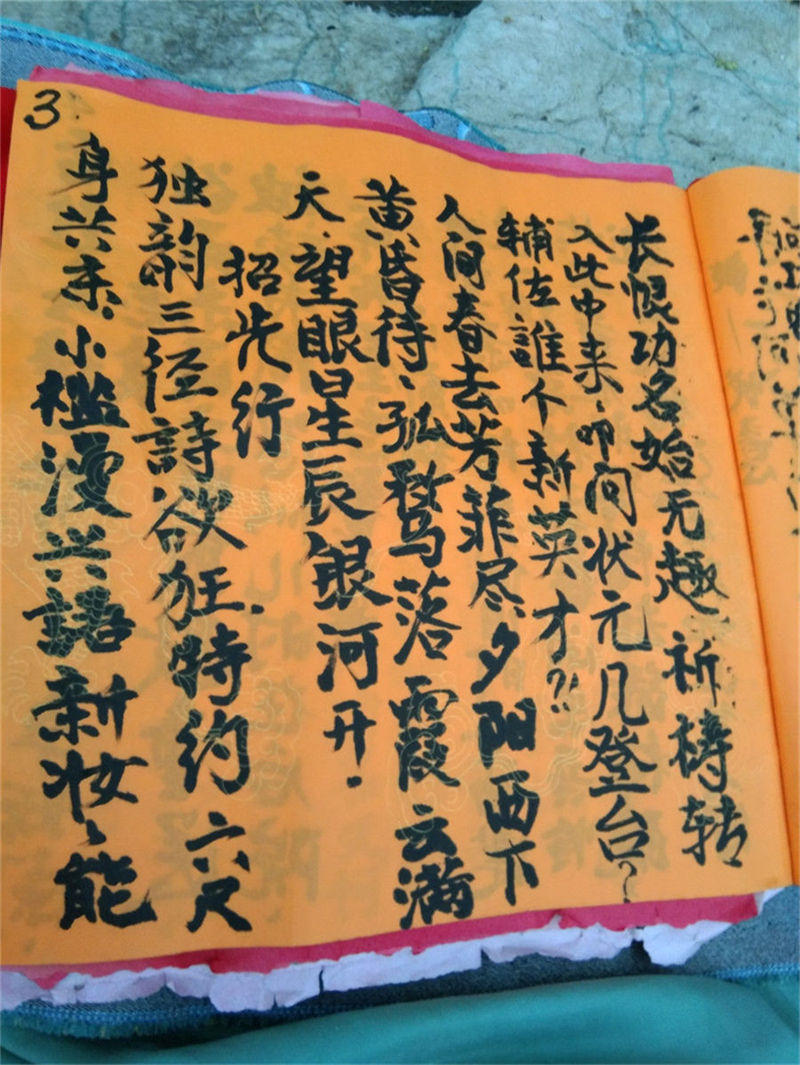 3
长恨功名始无趣 祈梼转
入此中来,叩问状元几登台?
辅佐誰个新英才?!
人间春去芳菲尽夕阳西下
黄昏待、孤鹜落霞云满
天.望眼星辰银河开.
招步行
独韵三径詩.欲狂.特约 六尺
身共余.小槛漫兴語新妆、能